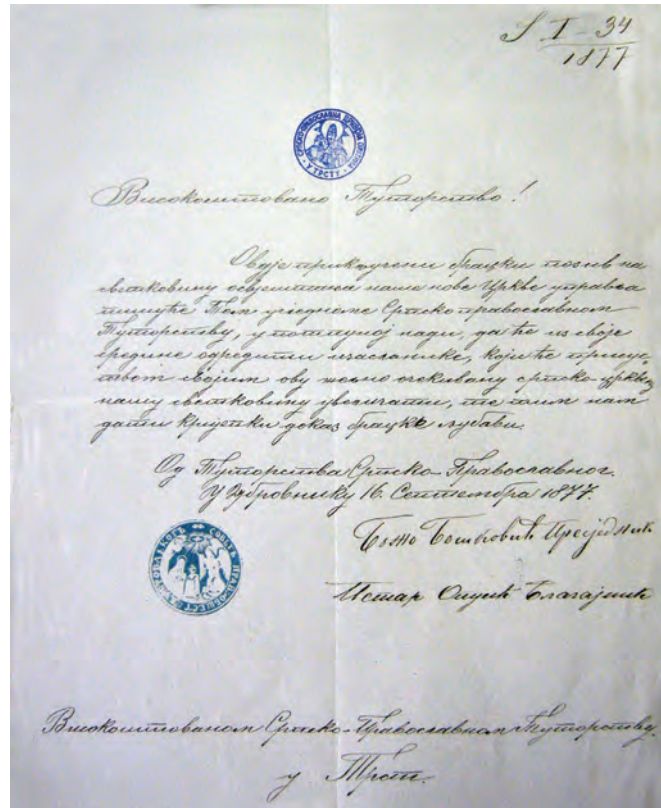 S I - 34
1877
СРПСКО-ПРАВОСЛАВНА ЦРКВЕНА ОПШТИНА · У ТРСТУ ·
Високоштовано Туторство!
Овдје прикључени брацки позив на
светковину освјештања наше нове Цркве управља
Там уједноме Српско православном
Туторству, у потпуној нади, да ће из своје
средине одредити изасланике, који ће присус
твом својим ову жељно очекивану српско-цркве
нашу светковину увеличати, те тим нам
дати крјепки доказ брацке љубави.
Од Туторства Српско-Православног.
У Дубровнику 16. Септембра 1877.
Божо Бошковић Предсједник
Петар Опуић Благајник
Високоштованом Српско-Православном Туторству
у Трсту.